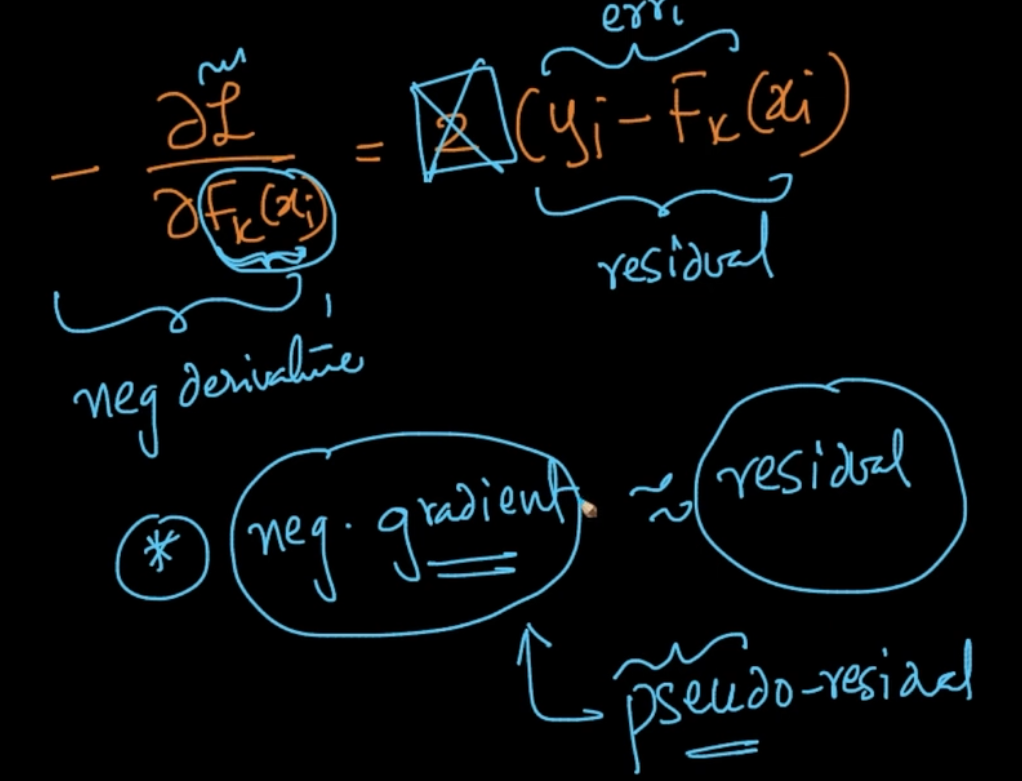 err_i
- ∂L/∂F_k(x_i) = 2 (y_i - F_k(x_i))
residual
neg derivative
* neg. gradient ≈ residual
pseudo-residual